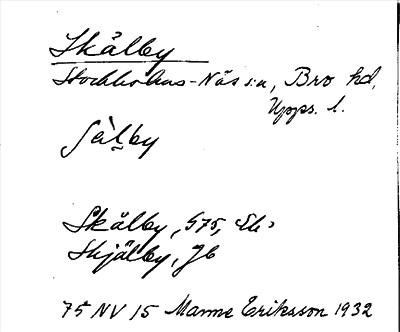 Skålby
Stockholms-Näs sn, Bro hd,
Upps. l.
Skålby, G75,
Skjålby, Jb
75 NV 15 Manne Eriksson 1932